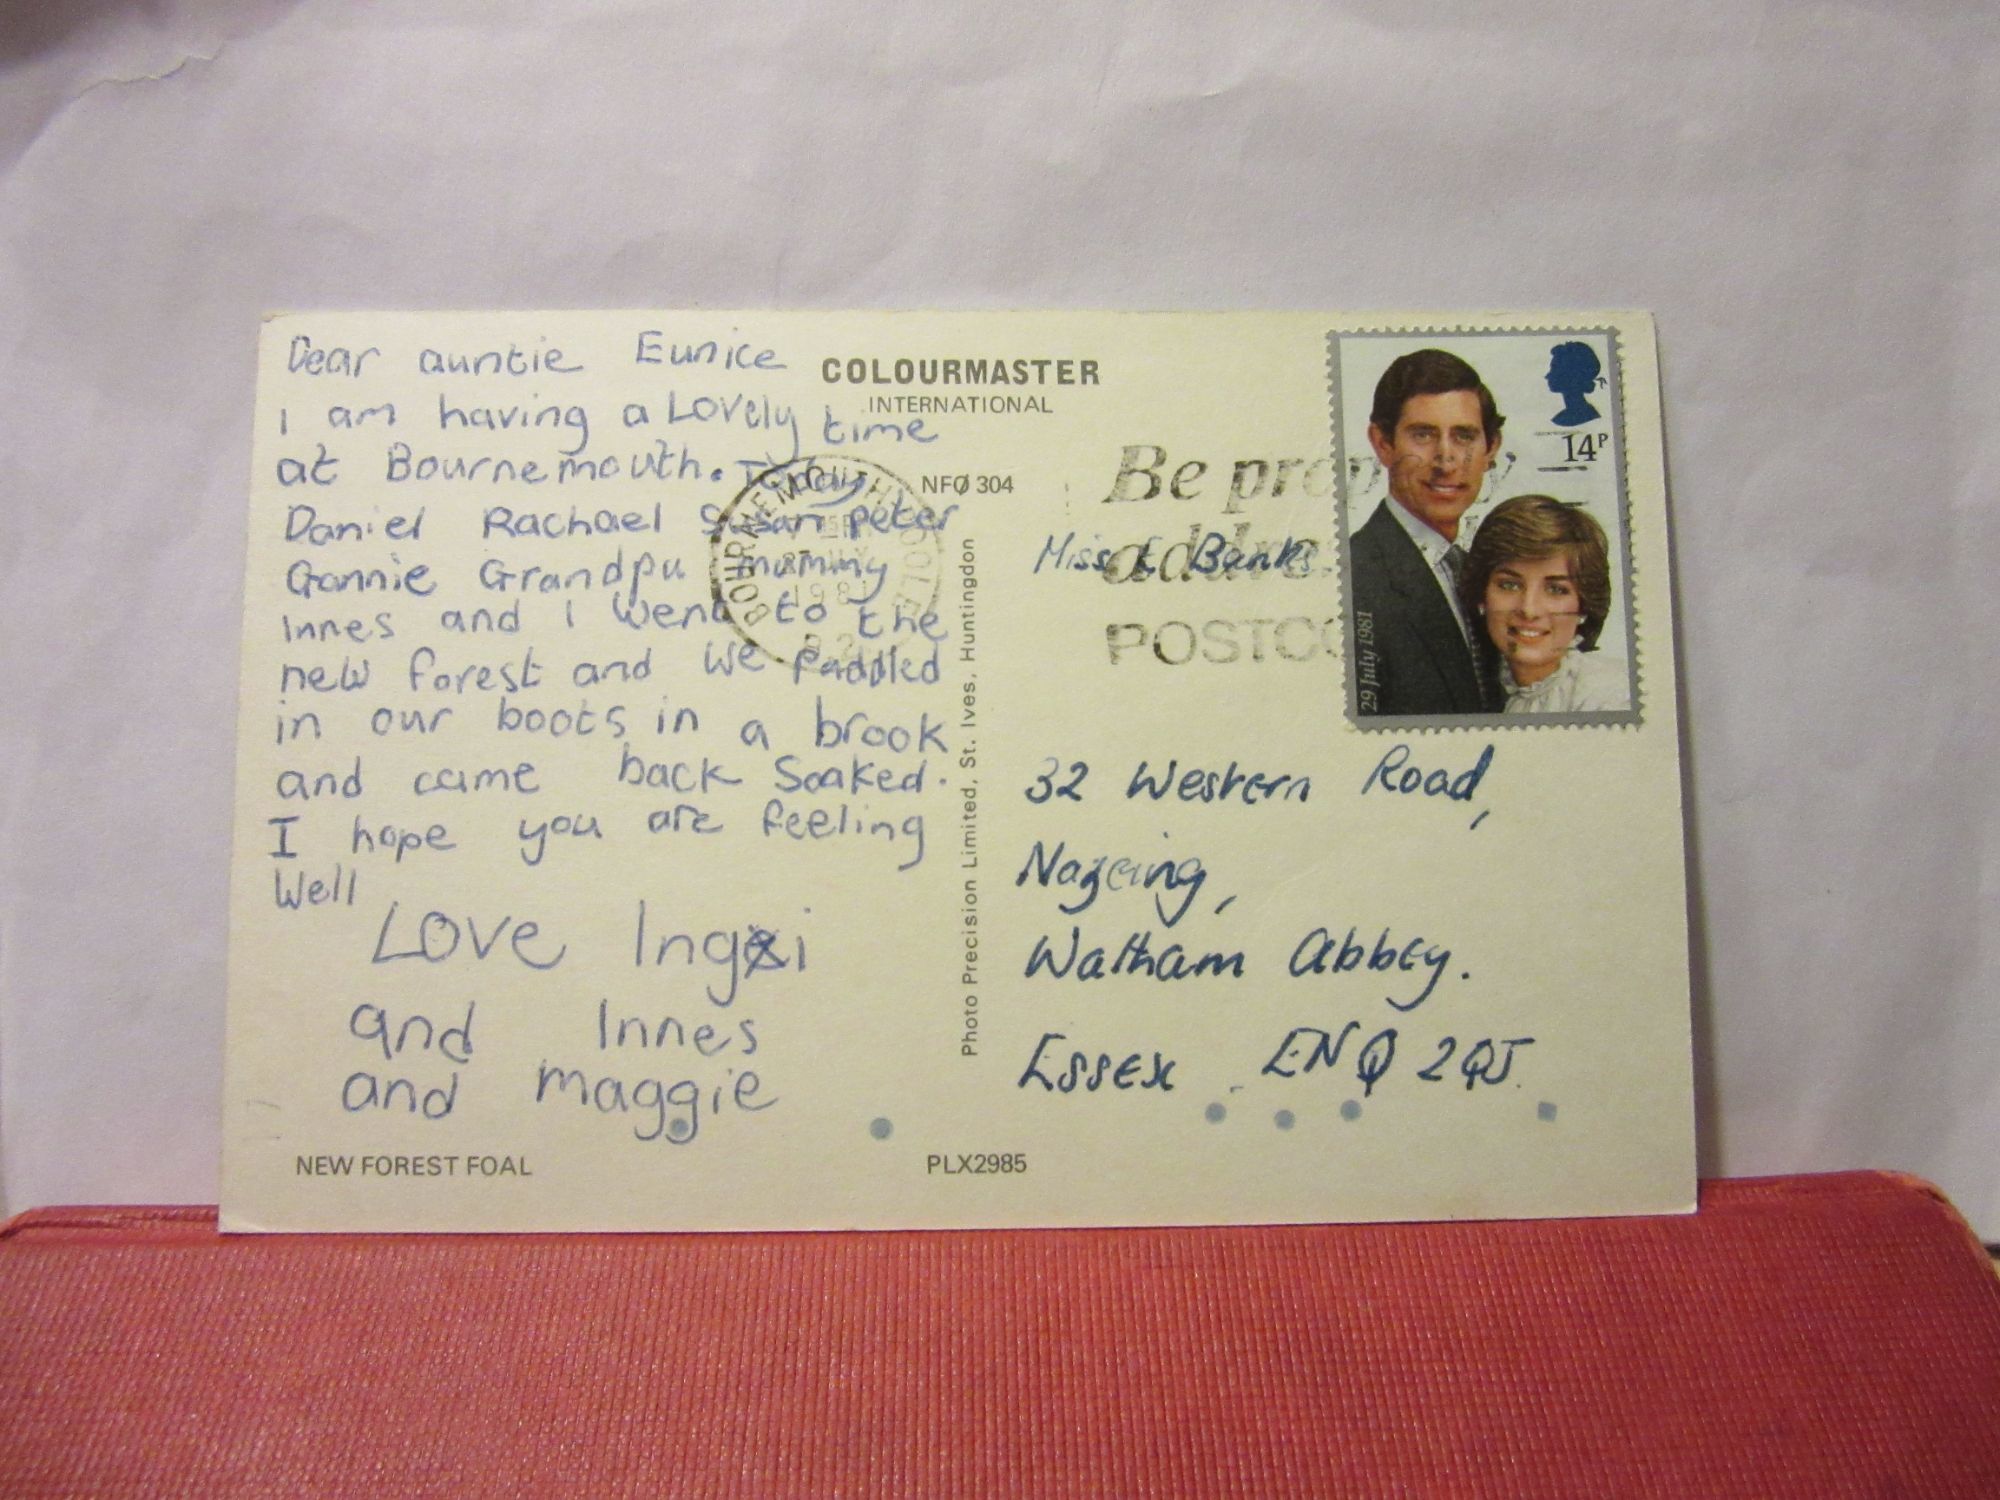 Dear auntie Eunice
I am having a Lovely time
at Bournemouth. Today
Daniel Rachael Susan peter
Gannie Grandpu mummy
Innes and I went to the
new forest and we paddled
in our boots in a brook
and came back Soaked.
I hope you are feeling
Well
Love Ingi
and Innes
and maggie
NEW FOREST FOAL
COLOURMASTER
INTERNATIONAL
NFO 304
BOURNEMOUTH POOLE
1981
Photo Precision Limited, St. Ives, Huntingdon
PLX2985
Be properly
addre
POSTCO
14P
29 July 1981
Miss E Banks
32 Western Road,
Nazeing,
Waltham Abbey.
Essex EN9 2QJ.